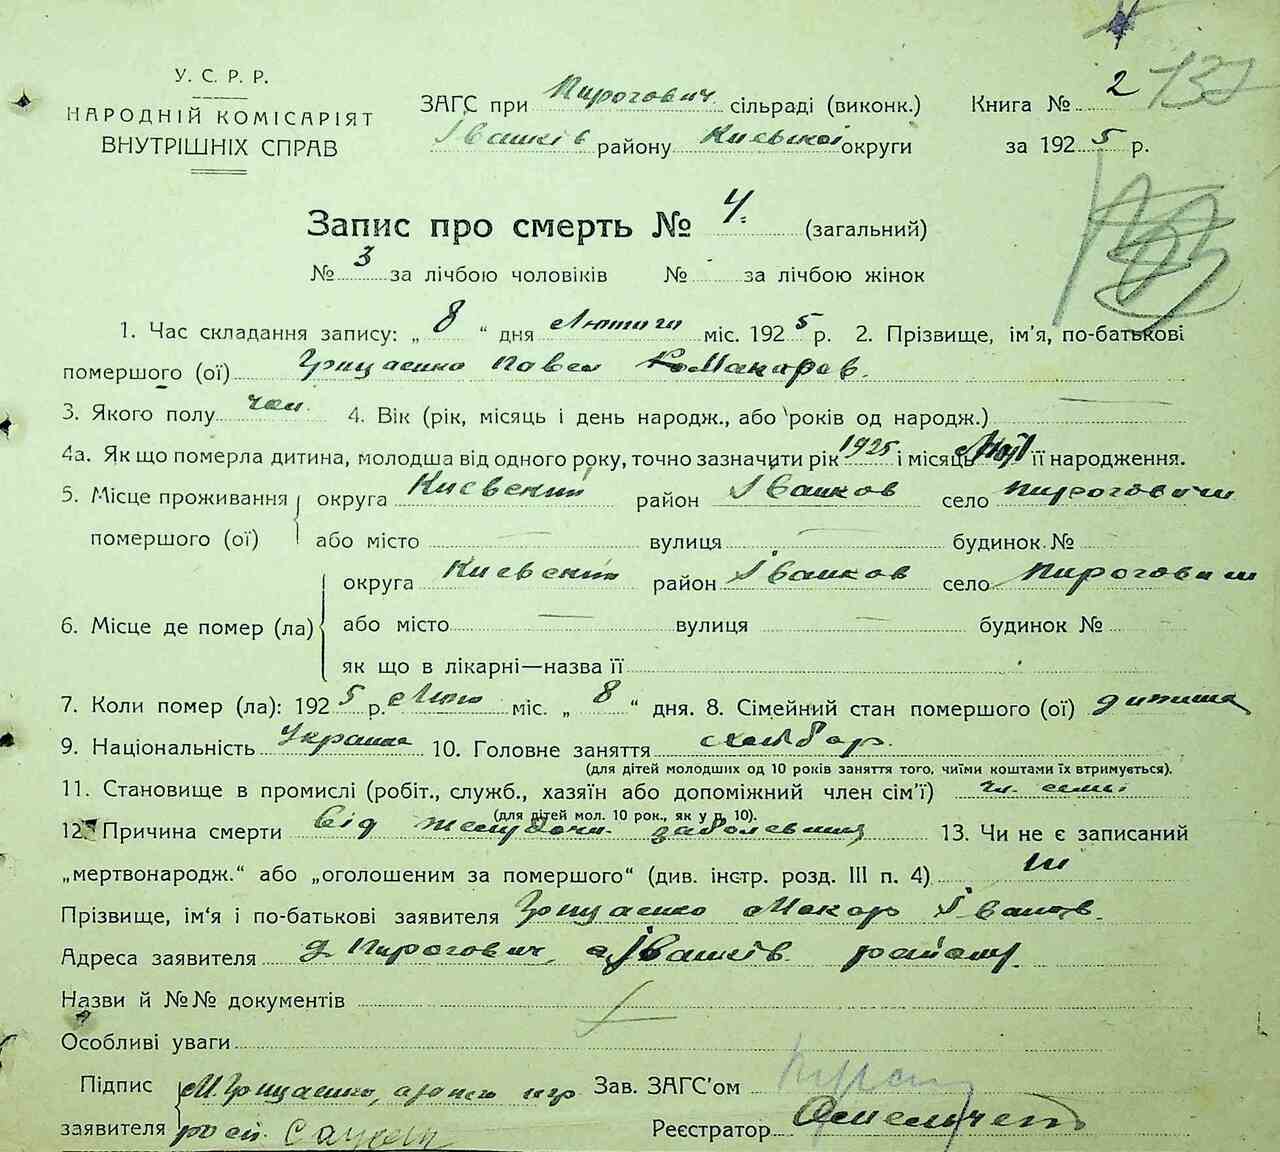 У. С. Р. Р.
НАРОДНІЙ КОМІСАРІЯТ
ВНУТРІШНІХ СПРАВ
ЗАГС при Пирогович сільраді (виконк.)
Івашків району Київської округи
Книга № 2 132
за 1925 р.
Запис про смерть № 4. (загальний)
№ 3 за лічбою чоловіків № - за лічбою жінок
1. Час складання запису: „ 8 “ дня Лютого міс. 1925 р. 2. Прізвище, ім’я, по-батькові
помершого (ої) Грищенко Павел Макаров.
3. Якого полу чол. 4. Вік (рік, місяць і день народж., або років од народж.) —
4а. Як що померла дитина, молодша від одного року, точно зазначити рік 1925 і місяць її народження.
5. Місце проживання помершого (ої) округа Киевский район Івашков село Пироговичи
або місто — вулиця — будинок №
6. Місце де помер (ла) округа Киевский район Івашков село Пироговичи
або місто — вулиця — будинок №
як що в лікарні—назва її
7. Коли помер (ла): 1925 р. Лют міс. „ 8 “ дня. 8. Сімейний стан помершого (ої) дитина
9. Національність Украине 10. Головне заняття хлібор.
(для дітей молодших од 10 років заняття того, чиїми коштами їх втримується).
11. Становище в промислі (робіт., служб., хазяїн або допоміжний член сім’ї) чл. семі
(для дітей мол. 10 рок., як у п. 10).
12. Причина смерти від желудочн. заболевания 13. Чи не є записаний
„мертвонародж.“ або „оголошеним за помершого“ (див. інстр. розд. III п. 4) ні
Прізвище, ім’я і по-батькові заявителя Грищенко Макар Іванов.
Адреса заявителя д. Пирогович, Івашків. району.
Назви й №№ документів
Особливі уваги
Підпис заявителя М. Грищенко,
Зав. ЗАГС’ом
Реєстратор